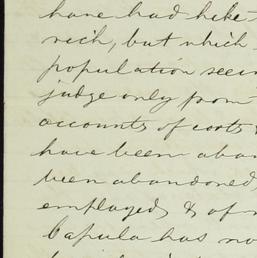 have had hete-
rich, but which
population seem
judge only from
accounts of costs &
have been aban
been abandoned,
employed, & of
Capula has no